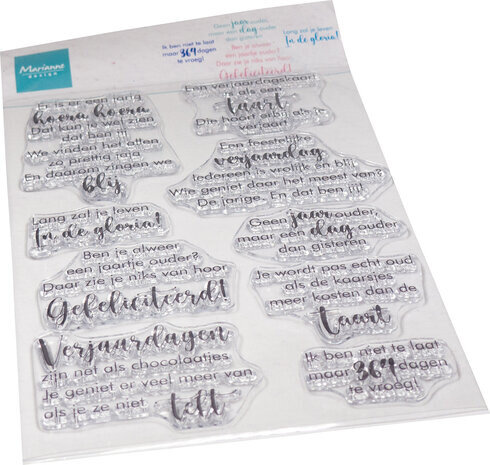 Marianne
design
Ik ben niet te laat
maar 364 dagen
te vroeg!
Geen jaar ouder,
maar een dag ouder
dan gisteren
Ben je alweer
een jaartje ouder?
Daar zie je niks van hoor
Gefeliciteerd!
Lang zal je leven
In de gloria!
Er is er een jarig
hoera hoera
Dat kan je wel zien
dat ben jij
We vinden het allen
zo prettig jaja
En daarom zingen we
blij
Een verjaardagskaart
is als een
taart
Die hoort erbij als je
verjaart
Een feestelijke
verjaardag
Iedereen is vrolijk en blij
Wie geniet daar het meest van?
De jarige. En dat ben jij!
Lang zal je leven
In de gloria!
Geen jaar ouder,
maar een dag ouder
dan gisteren
Ben je alweer
een jaartje ouder?
Daar zie je niks van hoor
Gefeliciteerd!
Je wordt pas echt oud
als de kaarsjes
meer kosten dan de
taart
Verjaardagen
zijn net als chocolaatjes
Je geniet er veel meer van
als je ze niet
telt
Ik ben niet te laat
maar 364 dagen
te vroeg!